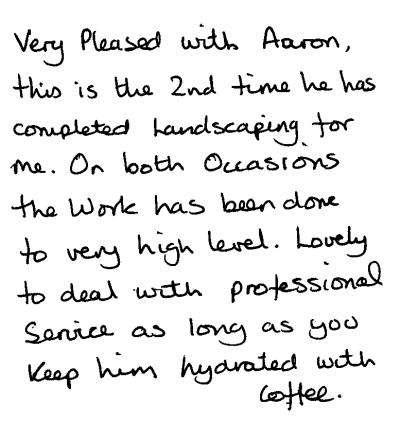 Very Pleased with Aaron,
this is the 2nd time he has
completed Landscaping for
me. On both Occasions
the Work has been done
to very high level. Lovely
to deal with professional
Service as long as you
Keep him hydrated with
Coffee.